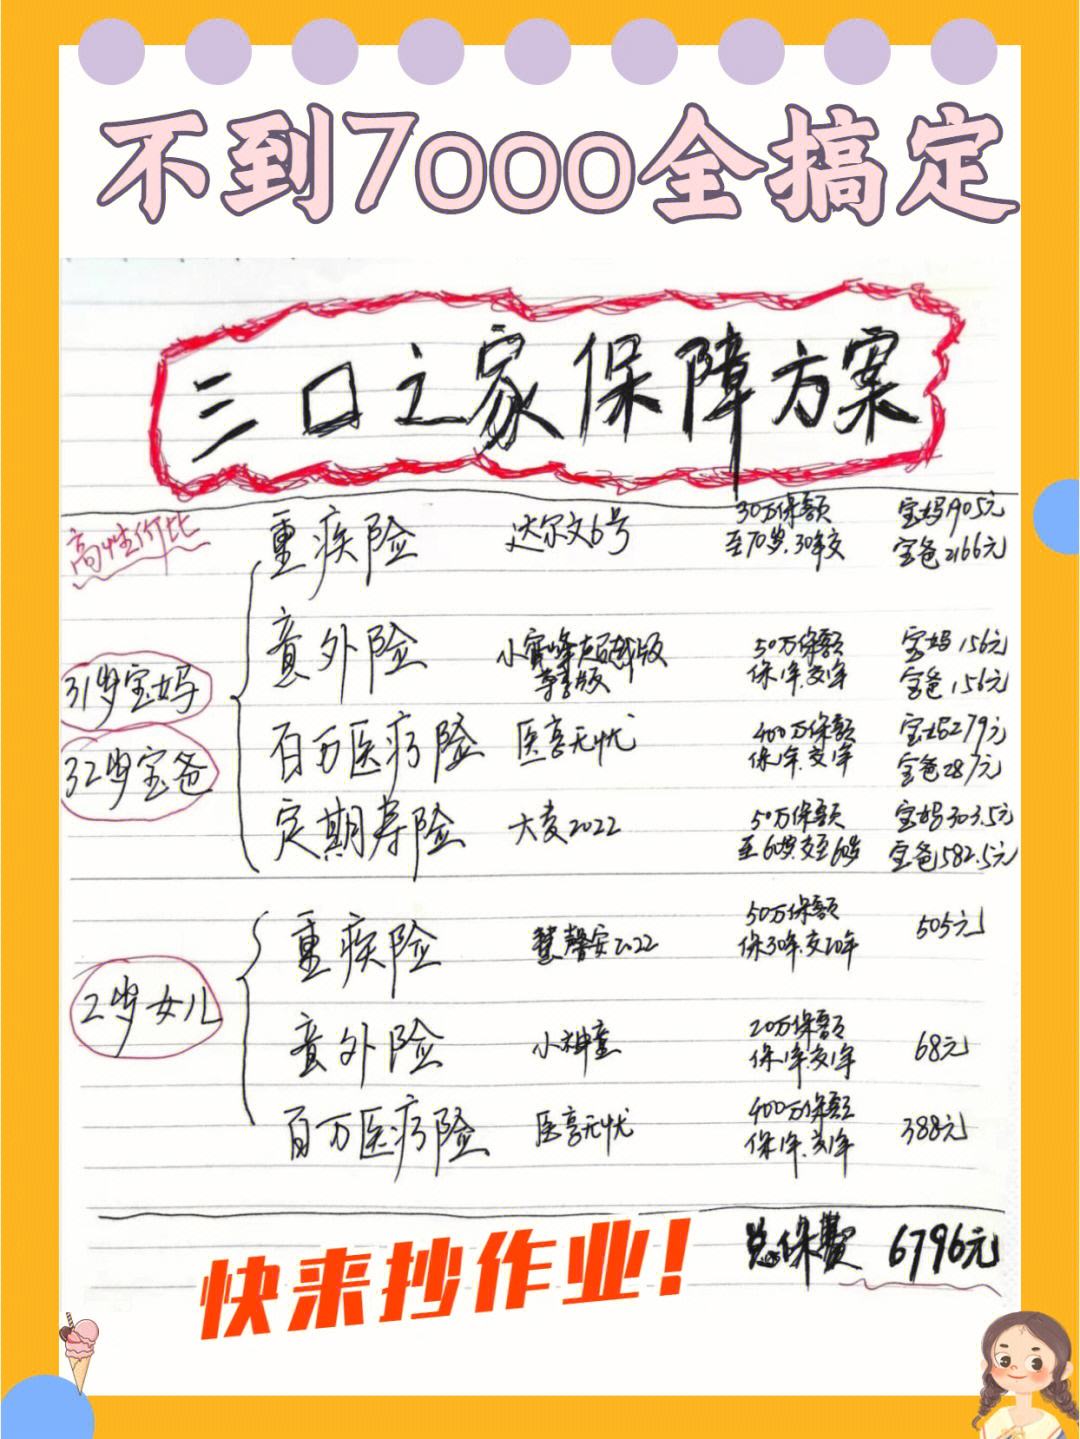 不到7000全搞定
三口之家保障方案
高性价比
重疾险 达尔文6号 30万保额 宝妈1905元
至70岁.30年交 宝爸2166元
31岁宝妈
32岁宝爸
意外险 小蜜蜂超越版 50万保额 宝妈156元
尊享版 保1年.交1年 宝爸156元
百万医疗险 医享无忧 400万保额 宝妈279元
保1年.交1年 宝爸287元
定期寿险 大麦2022 50万保额 宝妈303.5元
至60岁.交至60岁 宝爸582.5元
2岁女儿
重疾险 慧馨安2022 50万保额 505元
保30年.交20年
意外险 小神童 20万保额 68元
保1年.交1年
百万医疗险 医享无忧 400万保额 388元
保1年.交1年
总保费 6796元
快来抄作业!